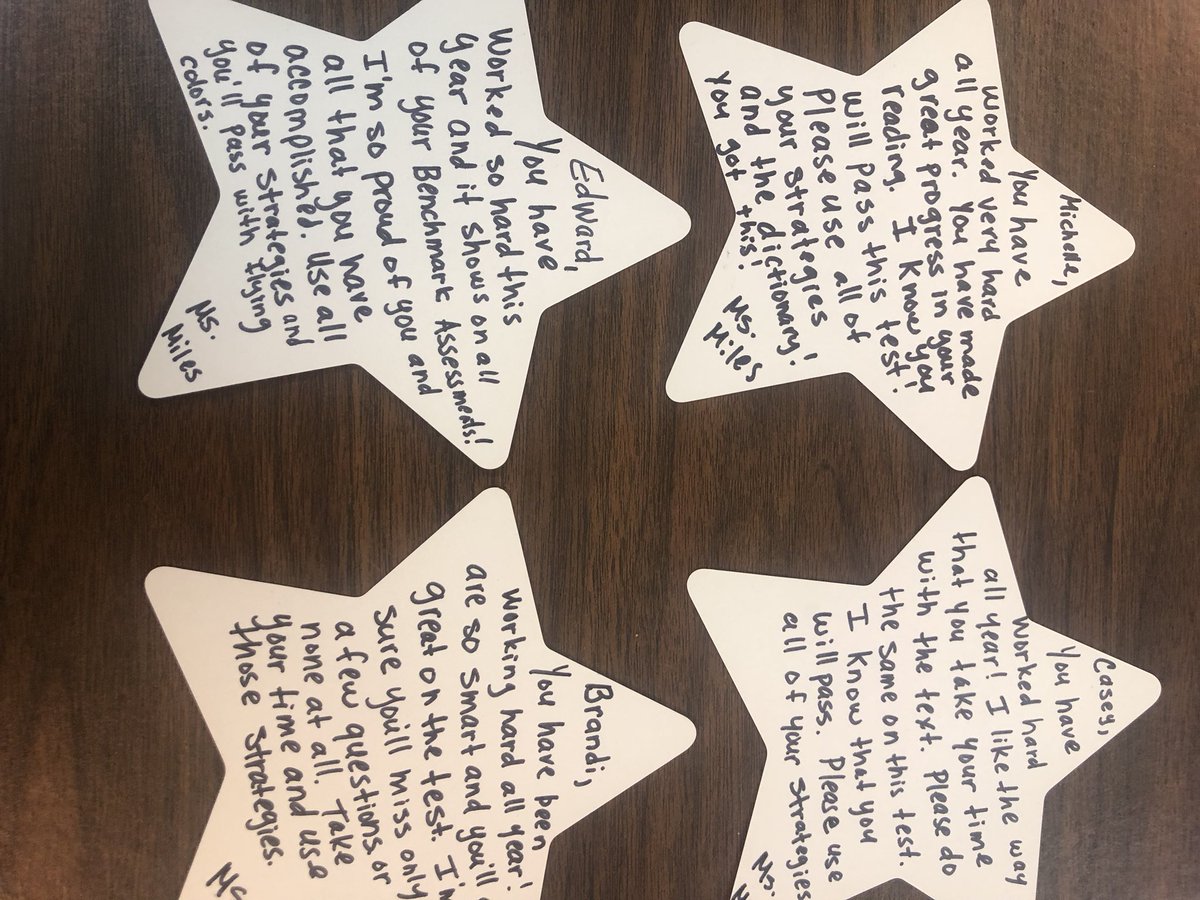 Michelle,
You have
worked very hard
all year. You have made
great progress in your
reading. I know you
will pass this test!
Please use all of
your strategies
and the dictionary!
You got this!
Ms.
Miles
Casey,
You have
worked hard
all year! I like the way
that you take your time
with the text. Please do
the same on this test.
I know that you
will pass. Please use
all of your strategies
Ms.
Edward,
You have
worked so hard this
year and it shows on all
of your Benchmark Assessments!
I'm so proud of you and
all that you have
accomplished. Use all
of your strategies and
you'll pass with flying
colors.
Ms.
Miles
Brandi,
You have been
working hard all year!
are so smart and you'll
great on the test. I'm
sure you'll miss only
a few questions or
none at all. Take
your time and use
those strategies.
Ms.